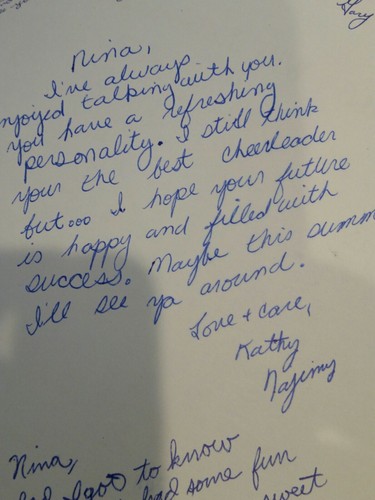 Gary
Nina,
I've always
njoyed talking with you.
you have a refreshing
personality. I still think
your the best cheerleader
but... I hope your future
is happy and filled with
success. Maybe this summ
I'll see ya around.
Love + care,
Kathy
Najimy
Nina,
I got to know
had some fun
sweet